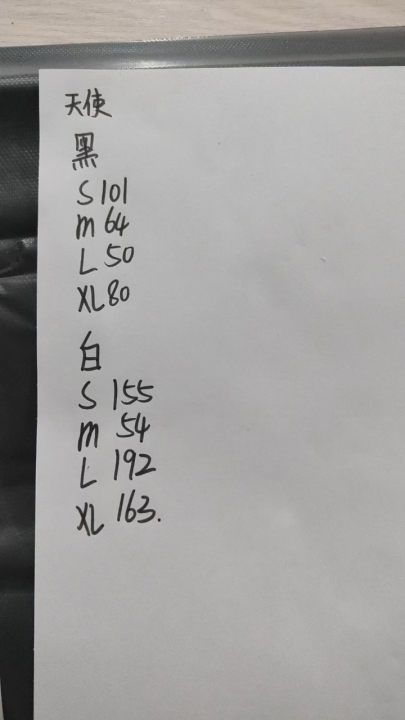 天使
黑
S 101
M 64
L 50
XL 80
白
S 155
M 54
L 192
XL 163.